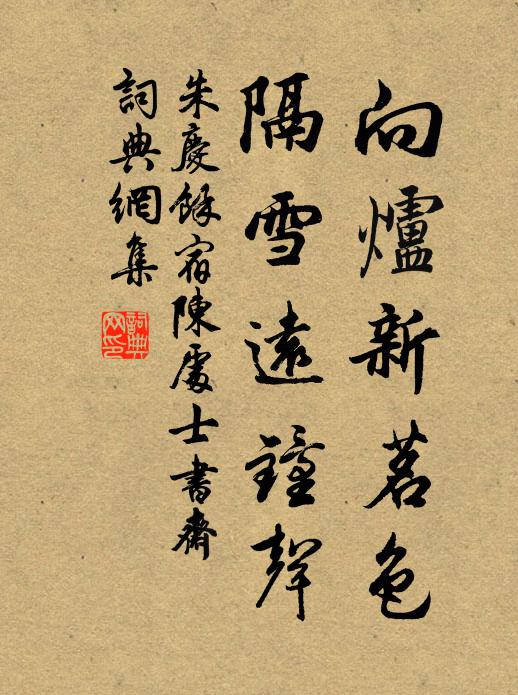 向爐新茗色
隔雪遠鐘聲
朱慶餘宿陳處士書齋
詞典網集
詞典
网印